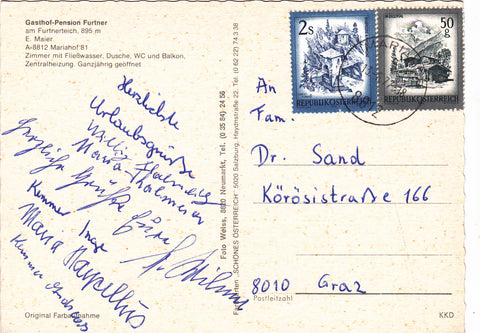 Gasthof-Pension Furtner
am Furtnerteich, 895 m
E. Maier
A-8812 Mariahof 81
Zimmer mit Fließwasser, Dusche, WC und Balkon,
Zentralheizung. Ganzjährig geöffnet
Herzlichste
Urlaubsgrüße
Willy
Maria
Herzliche Grüße
Kummer Inge
Maria
Kummer
Original Farbaufnahme
Foto Weiss, 8820 Neumarkt, Tel. (0 35 84) 24 56
Farbkarten „SCHÖNES ÖSTERREICH" 5020 Salzburg, Haydnstraße 22, Tel. (0 62 22) 74 3 38
2s
REPUBLIK ÖSTERREICH
50
g
REPUBLIK ÖSTERREICH
An
Fam.
Dr. Sand
Körösistraße 166
8010 Graz
Postleitzahl
KKD